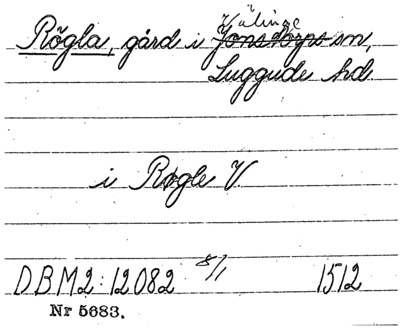 Välinge
Rögla, gård i Jonstorps sn,
Luggude hd
i Røgle V.
DBM2:12082 8/1 1512
Nr 5683.